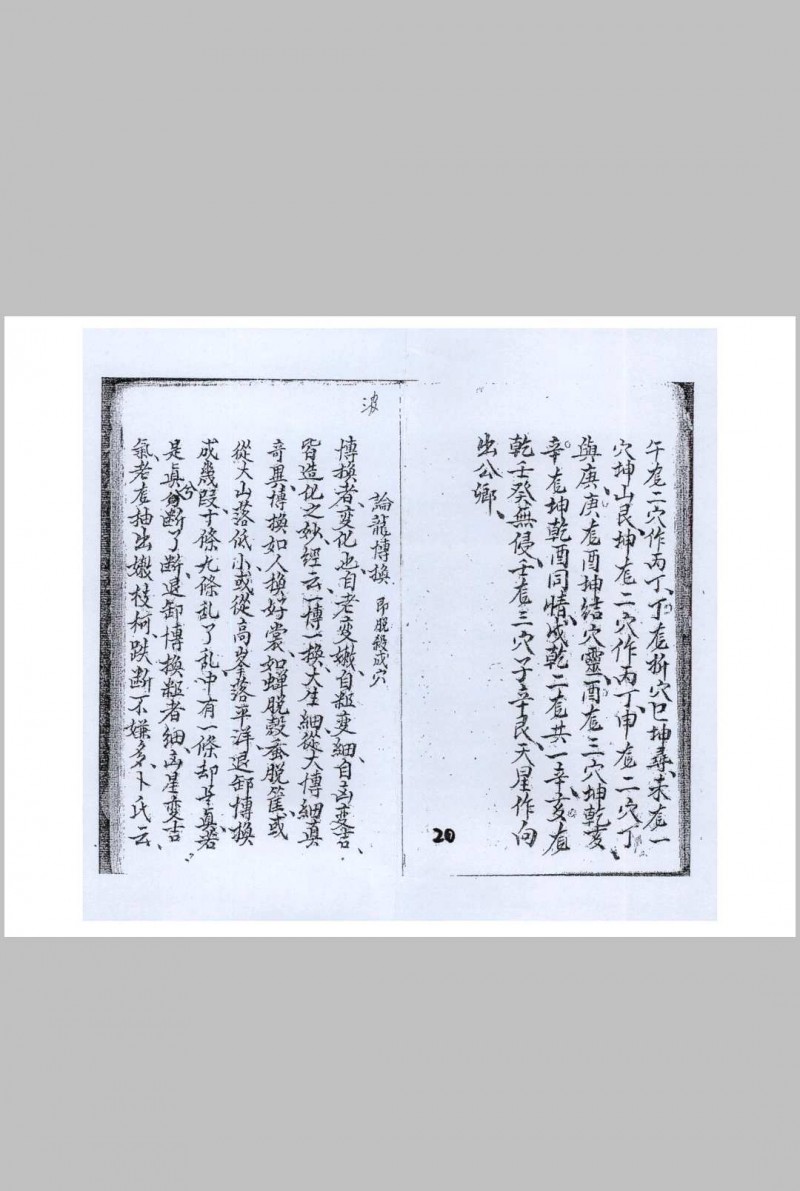 午龙二穴作丙丁丁龙扦穴巳坤尋未龙一
穴坤山艮坤龙二穴作丙丁申龙二穴丁
與庚庚龙酉坤結穴靈酉龙三穴坤乾亥
辛龙坤乾酉同情戌乾二龙共一辛亥龙
乾壬癸無侵壬龙三穴子辛艮天星作向
出公卿
20
波
論龍博換 即脫殺成穴
博換者変化也自老変嫩自粗変細自凶変吉
皆造化之妙經云一博一換大生細從大博細真
奇異博換如人換好裳如蟬脫殼蚕脫筐或
從大山落低小或從高峯落平洋退卸博換
成幾段十條九條乱了乱中有一條却是真若
是真兮断了断退卸博換粗者細凶星変吉
氣老龙抽出嫩枝柯跌断不嫌多卜氏云